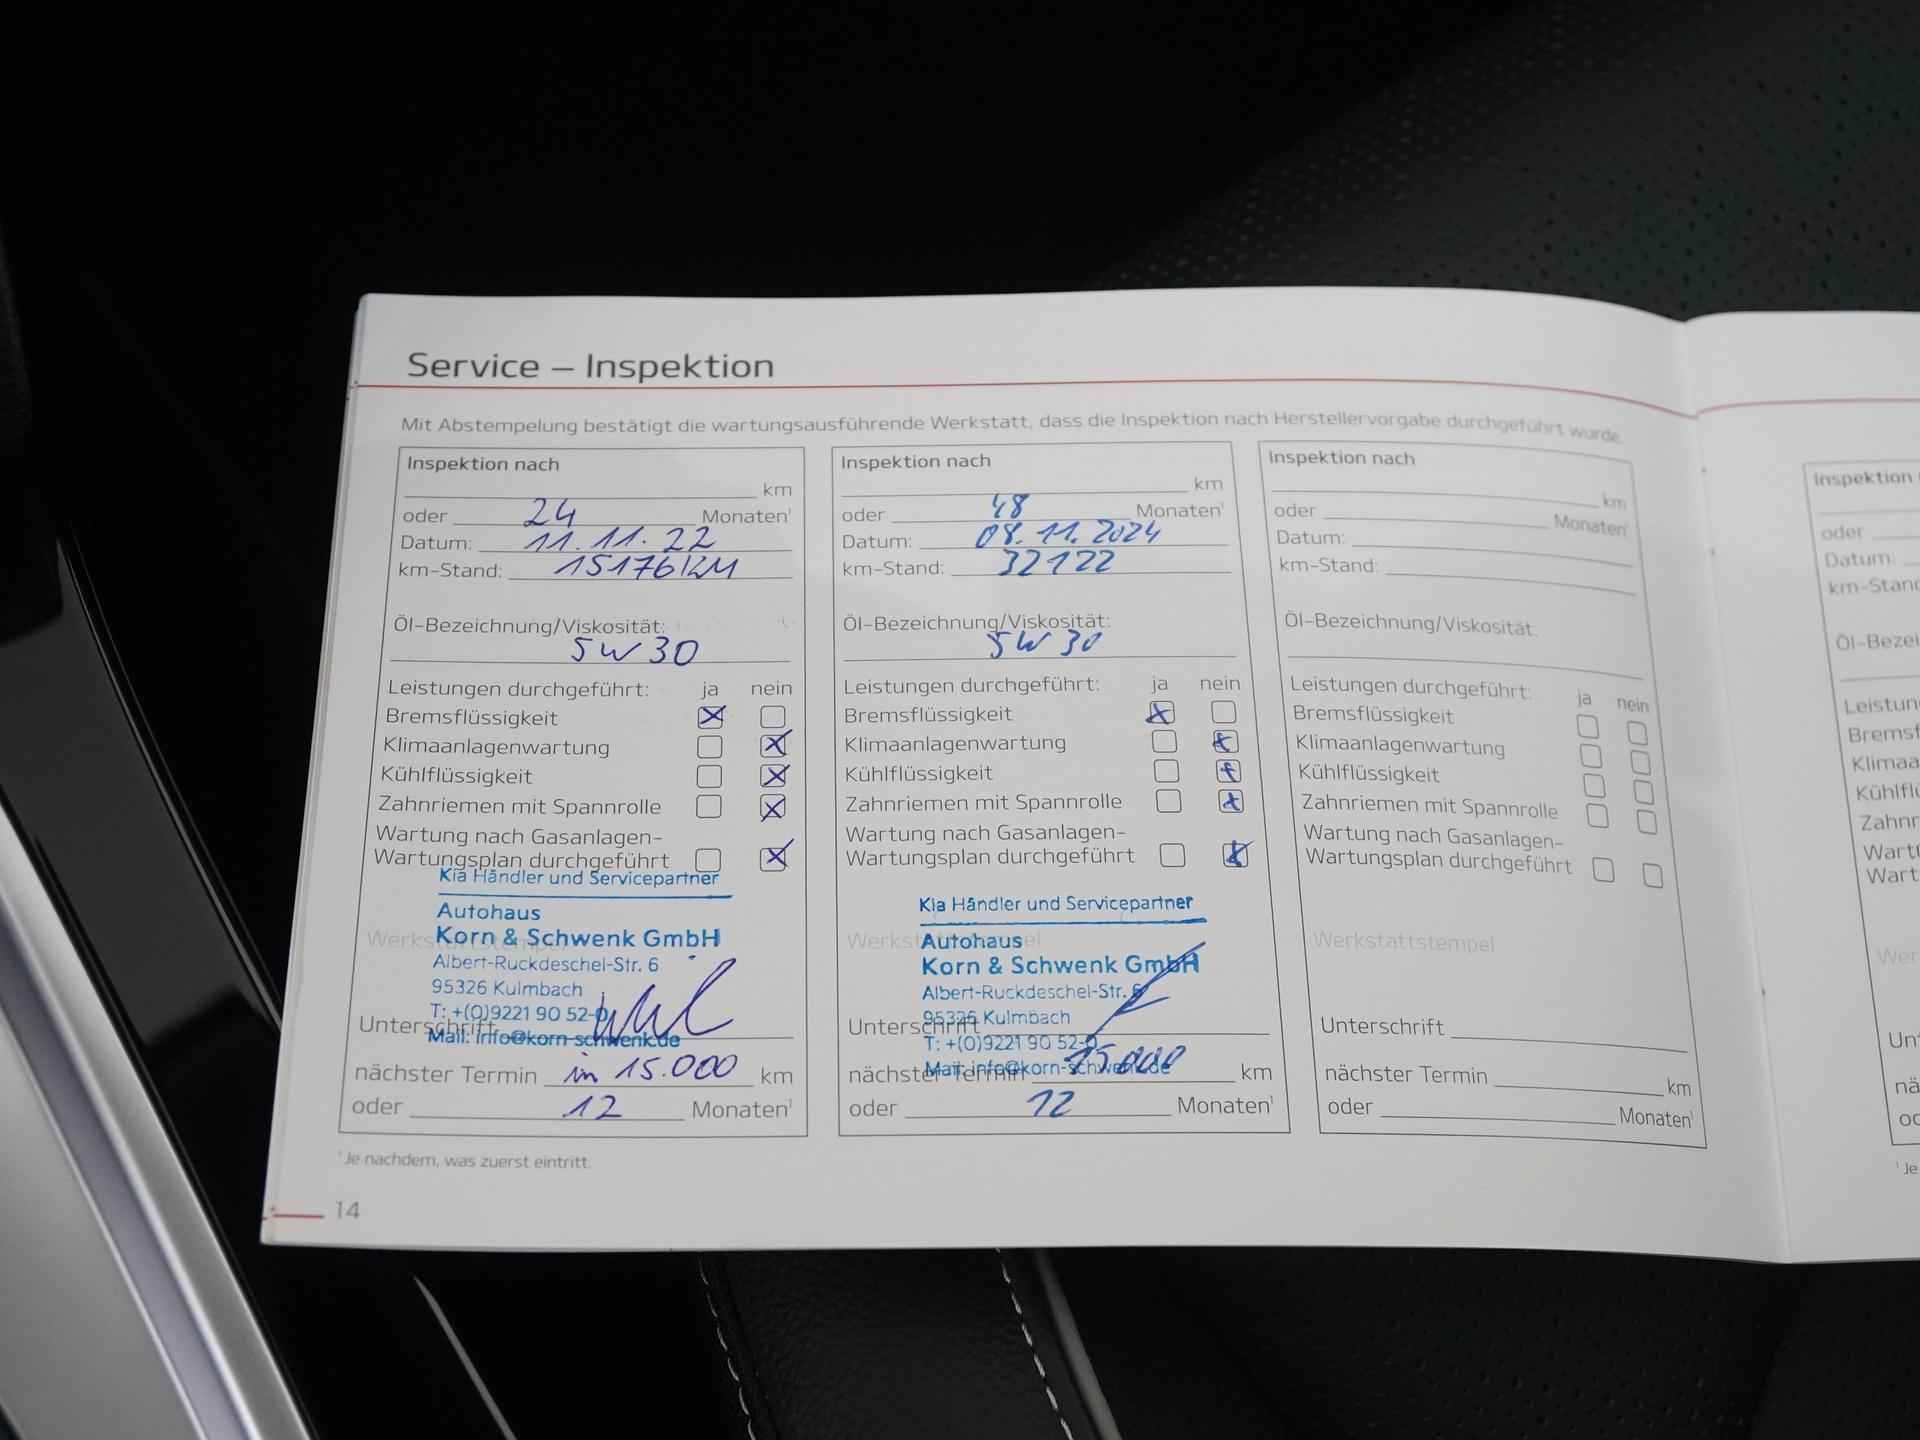 Service – Inspektion
Mit Abstempelung bestätigt die wartungsausführende Werkstatt, dass die Inspektion nach Herstellervorgabe durchgeführt wurde.
Inspektion nach
km
oder 24 Monaten¹
Datum: 11.11.22
km-Stand: 15176 KM
Öl-Bezeichnung/Viskosität:
5W30
Leistungen durchgeführt: ja nein
Bremsflüssigkeit
Klimaanlagenwartung
Kühlflüssigkeit
Zahnriemen mit Spannrolle
Wartung nach Gasanlagen-
Wartungsplan durchgeführt
Kia Händler und Servicepartner
Autohaus
Werkstattstempel
Korn & Schwenk GmbH
Albert-Ruckdeschel-Str. 6
95326 Kulmbach
T: +(0)9221 90 52-0
Unterschrift
Mail: info@korn-schwenk.de
nächster Termin in 15.000 km
oder 12 Monaten¹
Inspektion nach
km
oder 48 Monaten¹
Datum: 08.11.2024
km-Stand: 32122
Öl-Bezeichnung/Viskosität:
5W30
Leistungen durchgeführt: ja nein
Bremsflüssigkeit
Klimaanlagenwartung
Kühlflüssigkeit
Zahnriemen mit Spannrolle
Wartung nach Gasanlagen-
Wartungsplan durchgeführt
Kia Händler und Servicepartner
Werkstattstempel
Autohaus
Korn & Schwenk GmbH
Albert-Ruckdeschel-Str. 6
95326 Kulmbach
Unterschrift
T: +(0)9221 90 52-0
Mail: info@korn-schwenk.de
nächster Termin 15.000 km
oder 12 Monaten¹
Inspektion nach
km
oder Monaten¹
Datum:
km-Stand:
Öl-Bezeichnung/Viskosität:
Leistungen durchgeführt: ja nein
Bremsflüssigkeit
Klimaanlagenwartung
Kühlflüssigkeit
Zahnriemen mit Spannrolle
Wartung nach Gasanlagen-
Wartungsplan durchgeführt
Werkstattstempel
Unterschrift
nächster Termin km
oder Monaten¹
¹ Je nachdem, was zuerst eintritt.
14
Inspektion
oder
Datum:
km-Stand
Öl-Bezei
Leistun
Bremsf
Klimaa
Kühlflü
Zahnr
Wartu
Wart
Wer
Unt
nä
oc
¹ Je